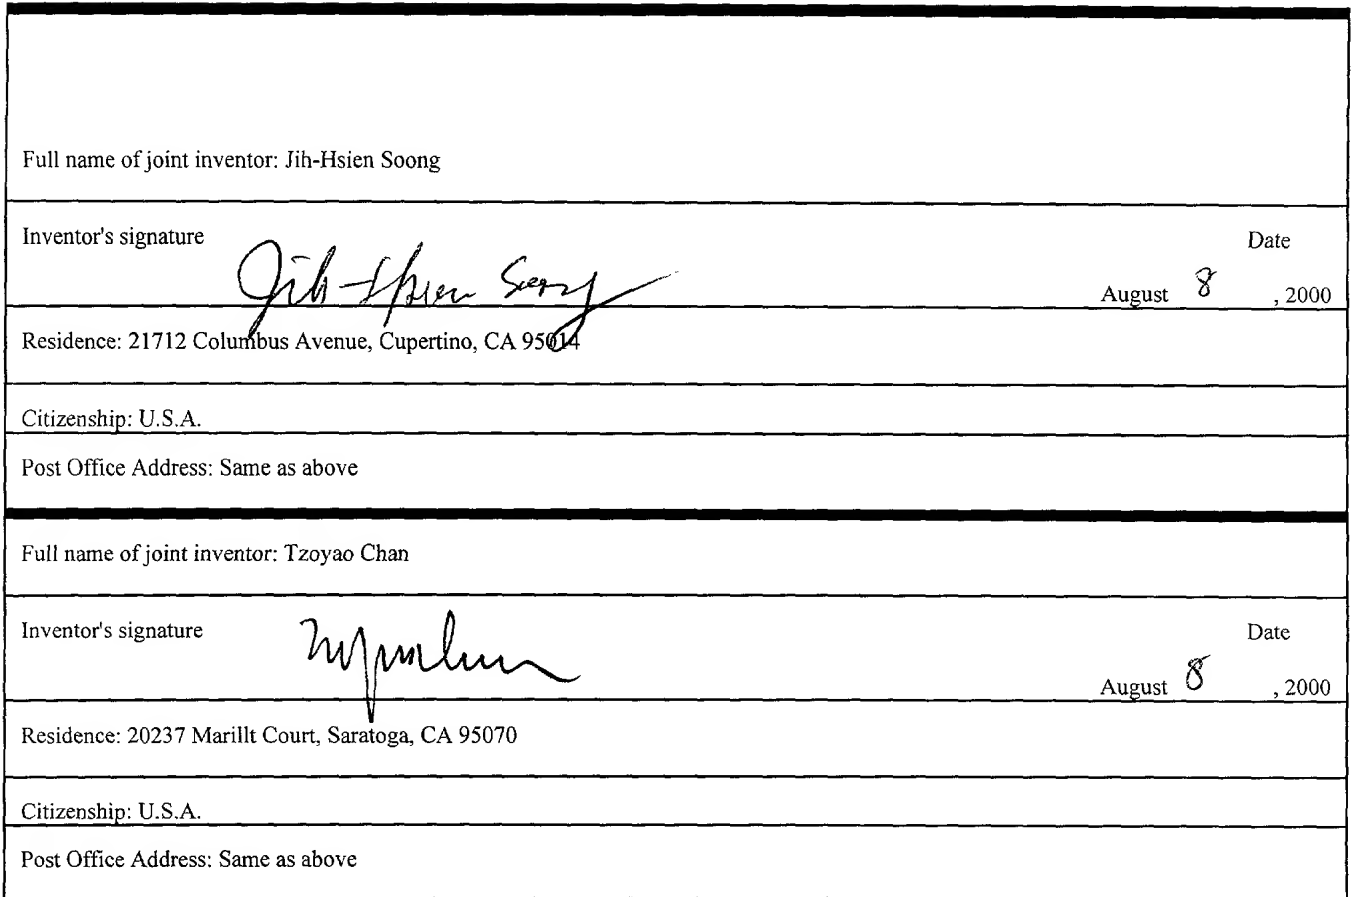 Full name of joint inventor: Jih-Hsien Soong
Inventor's signature
Date
Jih-Hsien Soong
August 8, 2000
Residence: 21712 Columbus Avenue, Cupertino, CA 95014
Citizenship: U.S.A.
Post Office Address: Same as above
Full name of joint inventor: Tzoyao Chan
Inventor's signature
Date
August 8, 2000
Residence: 20237 Marillt Court, Saratoga, CA 95070
Citizenship: U.S.A.
Post Office Address: Same as above